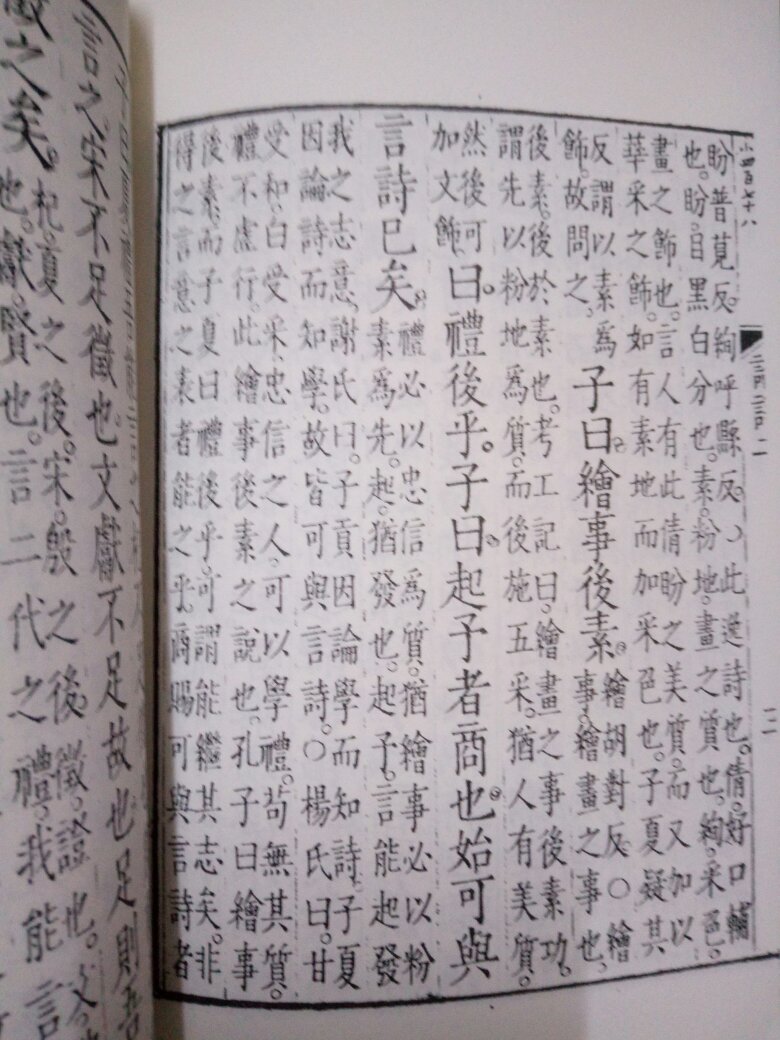 小四百七十八
二
盼普莧反絢呼縣反。○此逸詩也。倩好口輔
也。盼。目黑白分也。素。粉地。畫之質也。絢。采色。
畫之飾也。言人有此倩盼之美質。而又加以
華采之飾。如有素地而加采色也。子夏疑其
反謂以素爲
飾。故問之。
子曰。繪事後素。
繪胡對反。○繪
事。繪畫之事也。
後素。後於素也。考工記曰。繪畫之事後素功。
謂先以粉地爲質。而後施五采。猶人有美質。
然後可
加文飾。
曰。禮後乎。子曰。起予者商也始可與
言詩已矣。
禮必以忠信爲質。猶繪事必以粉
素爲先。起。猶發也。起予。言能起發
我之志意。謝氏曰。子貢因論學而知詩。子夏
因論詩而知學。故皆可與言詩。○楊氏曰。甘
受和。白受采。忠信之人。可以學禮。苟無其質。
禮不虛行。此繪事後素之說也。孔子曰繪事
後素。而子夏曰禮後乎。可謂能繼其志矣。非
得之言意之表者能之乎。商賜可與言詩者
言之宋不足徵也文獻不足故也足則吾
徵之矣。
杞。夏之後。宋。殷之後。徵。證也。文
也。獻。賢也。言二代之禮。我能言